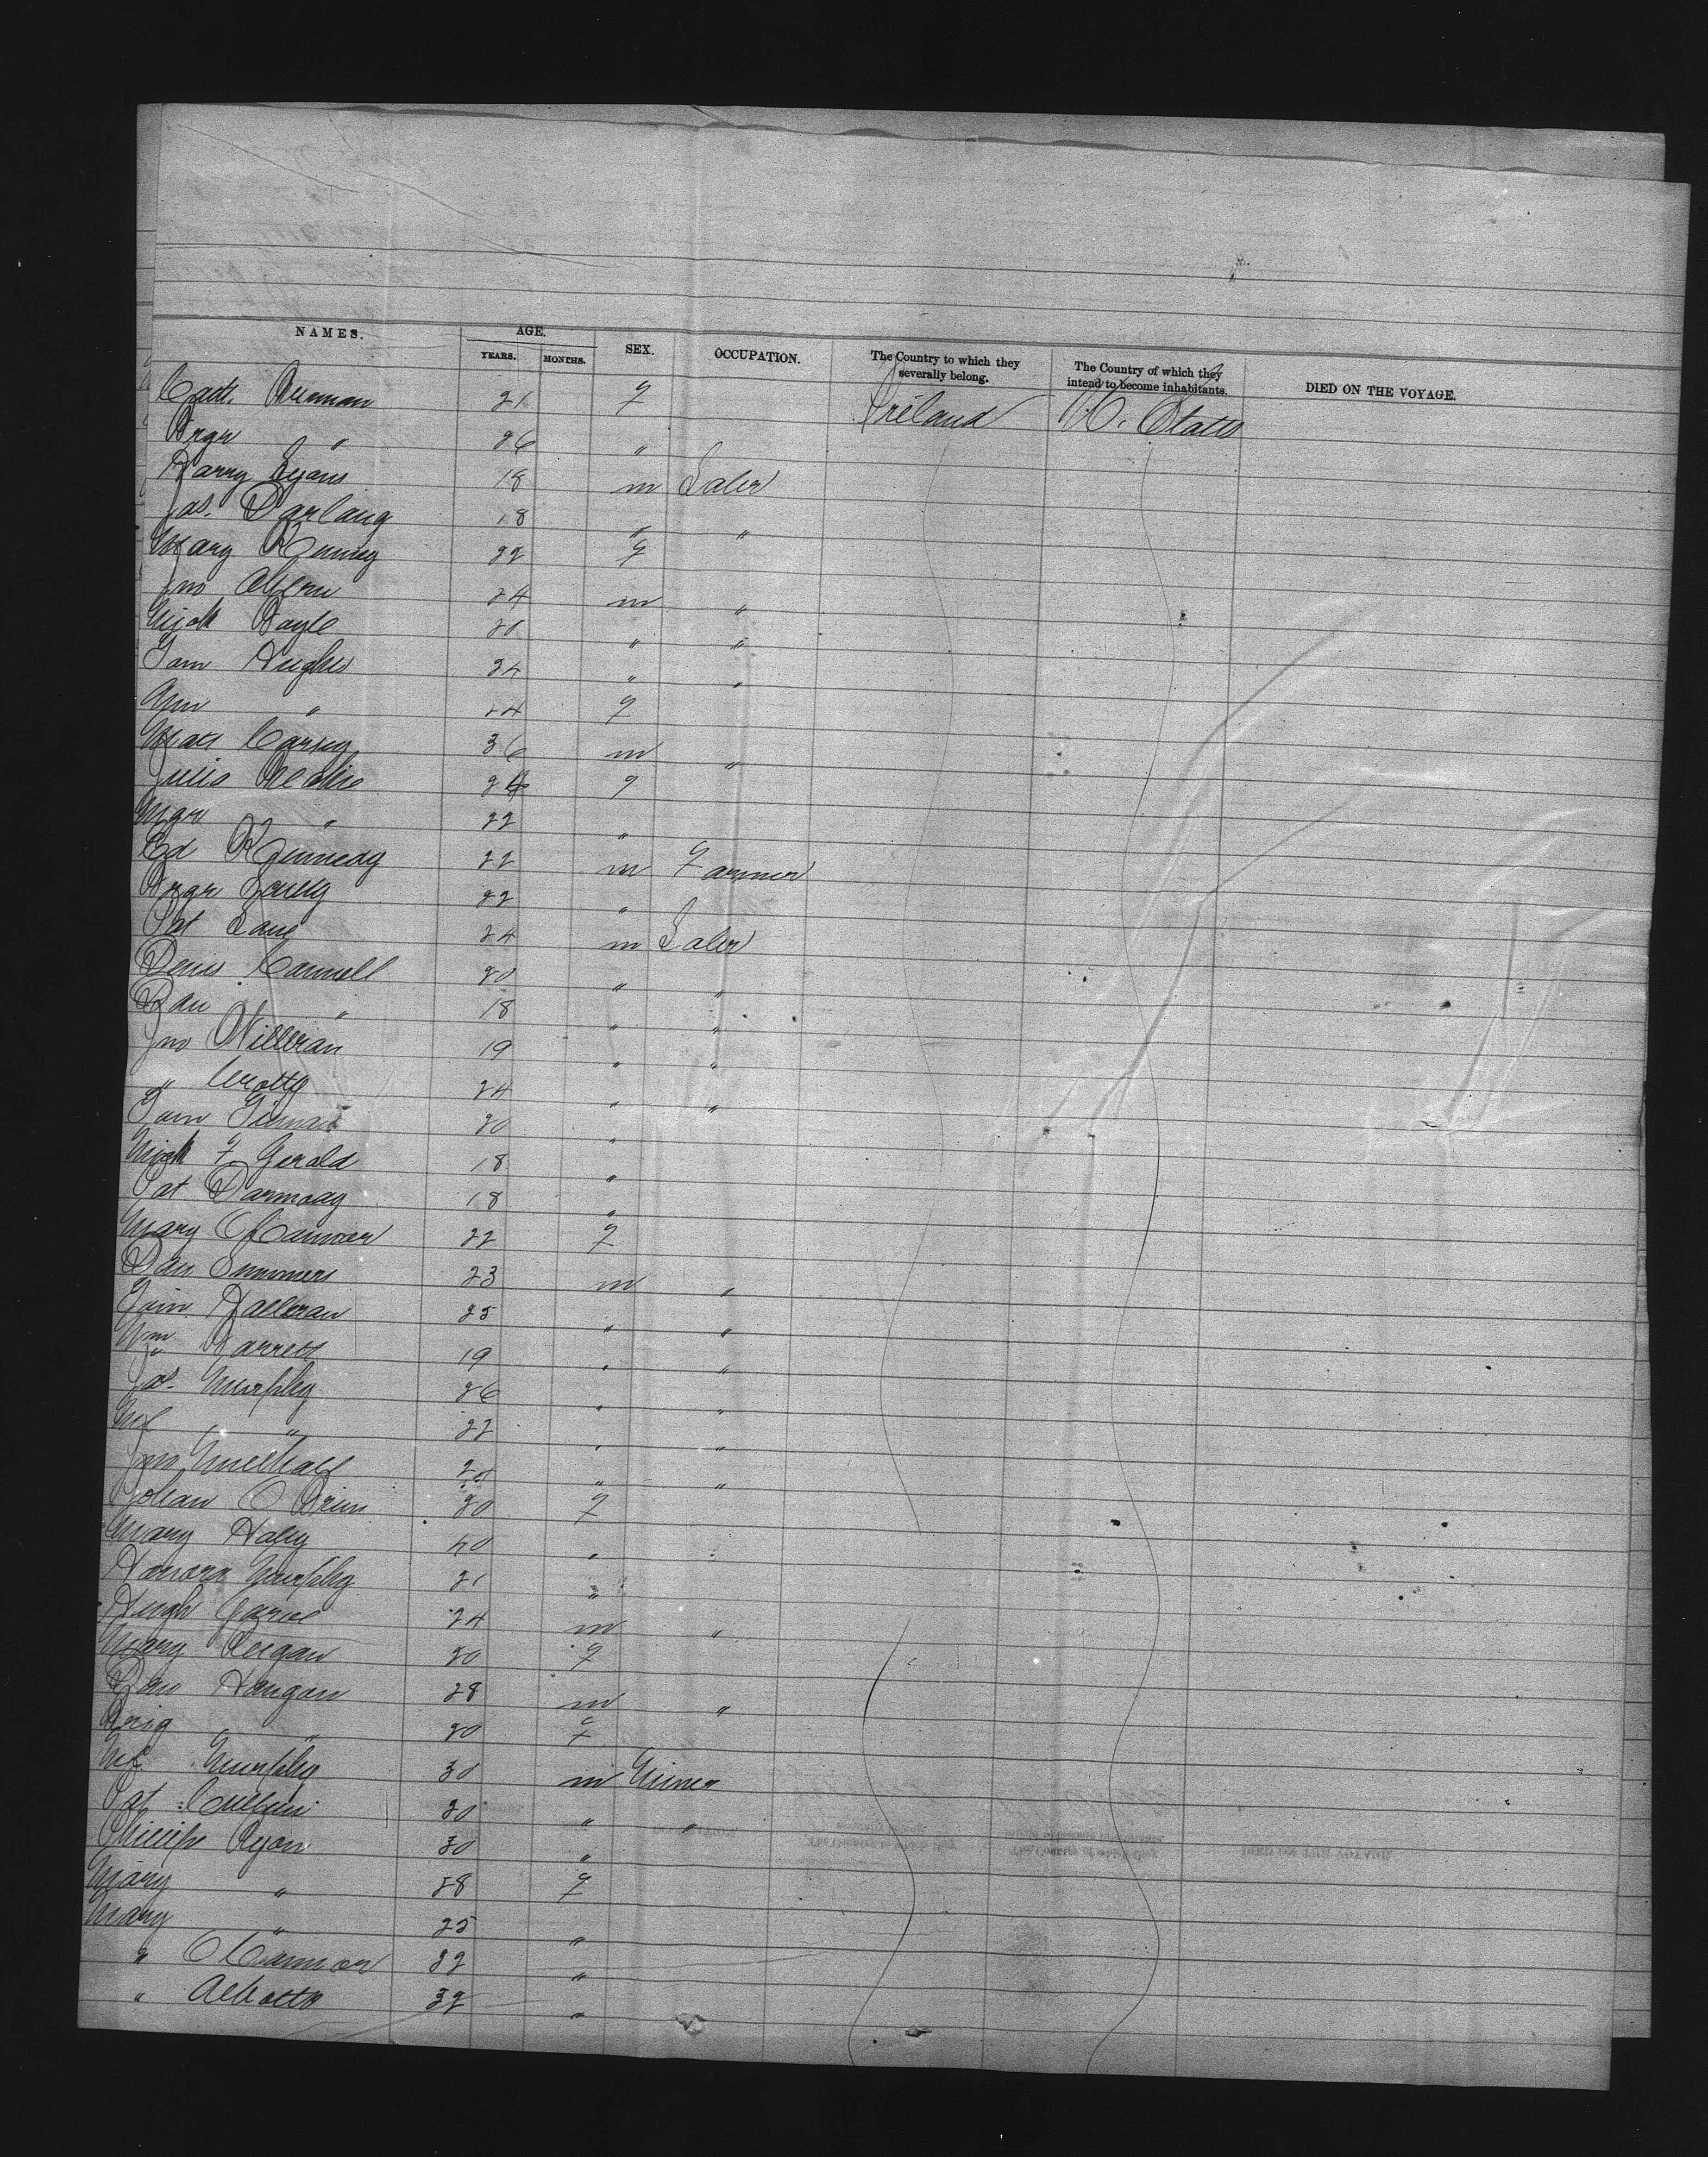 NAMES. AGE. YEARS. MONTHS. SEX. OCCUPATION. The Country to which they severally belong. The Country of which they intend to become inhabitants. DIED ON THE VOYAGE.
Cath. Brennan 21 f Ireland U. States
Brgt " 26 "
Harry Lyons 18 m Labr
Jas. Darlang 18 " "
Mary Kenney 22 f
Jno Ahern 24 m "
Mich Boyle 20 " "
Tom Hughes 24 " "
Ann " 24 f
Mat Carsey 36 m "
Julia 24 f
Mgr " 22 "
Ed Kennedy 22 m Farmer
Brgt 22 "
Pat Lane 24 m Labr
Denis Connell 20 " "
Dan " 18 " "
Jno Killeran 19 " "
" Crotty 24 " "
Tom 20 "
Mich F Gerald 18 "
Pat Darmody 18 "
Mary O Connor 22 f
Dan Summers 23 m "
Tom Halloran 25 " "
Wm Barrett 19 " "
Jas. Murphy 26 " "
Ml " 22 " "
Jno Mulhall 20 " "
Johan O Brien 20 f
Mary Haley 40 "
Honora Murphy 21 "
Hugh 24 m "
Mary Regan 20 f
Dan Hangan 28 m "
Brig " 20 f
Ml Murphy 30 m Miner
Pat Cullen 20 " "
Phillip Ryan 30 "
Mary " 28 f
Mary " 25 "
" O Connor 22 "
" Abbott 32 "